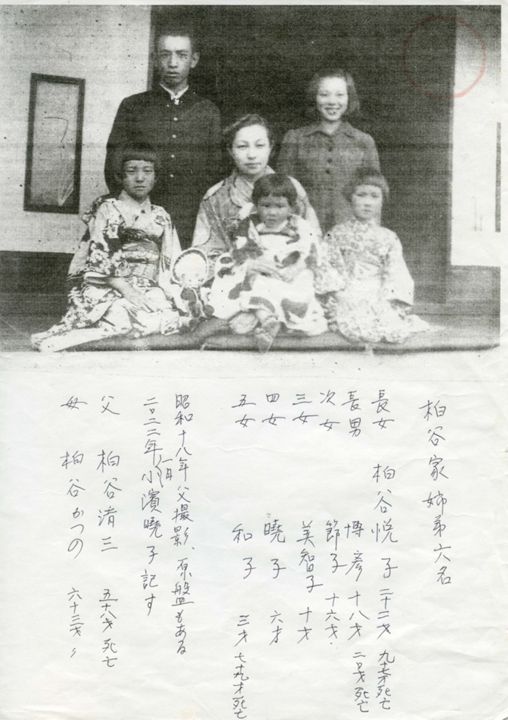 柏谷家姉弟六名
長女 柏谷悦子 二十二才 九十才死亡
長男 博彦 十八才 二〇才死亡
次女 節子 十六才.
三女 美智子 十才
四女 暁子 六才
五女 和子 三才 七九才死亡
昭和十八年父撮影、原盤もある
二〇二二年一月小濱曉子記す
父 柏谷清三 五十八才死亡
母 柏谷かつの 六十三才〃